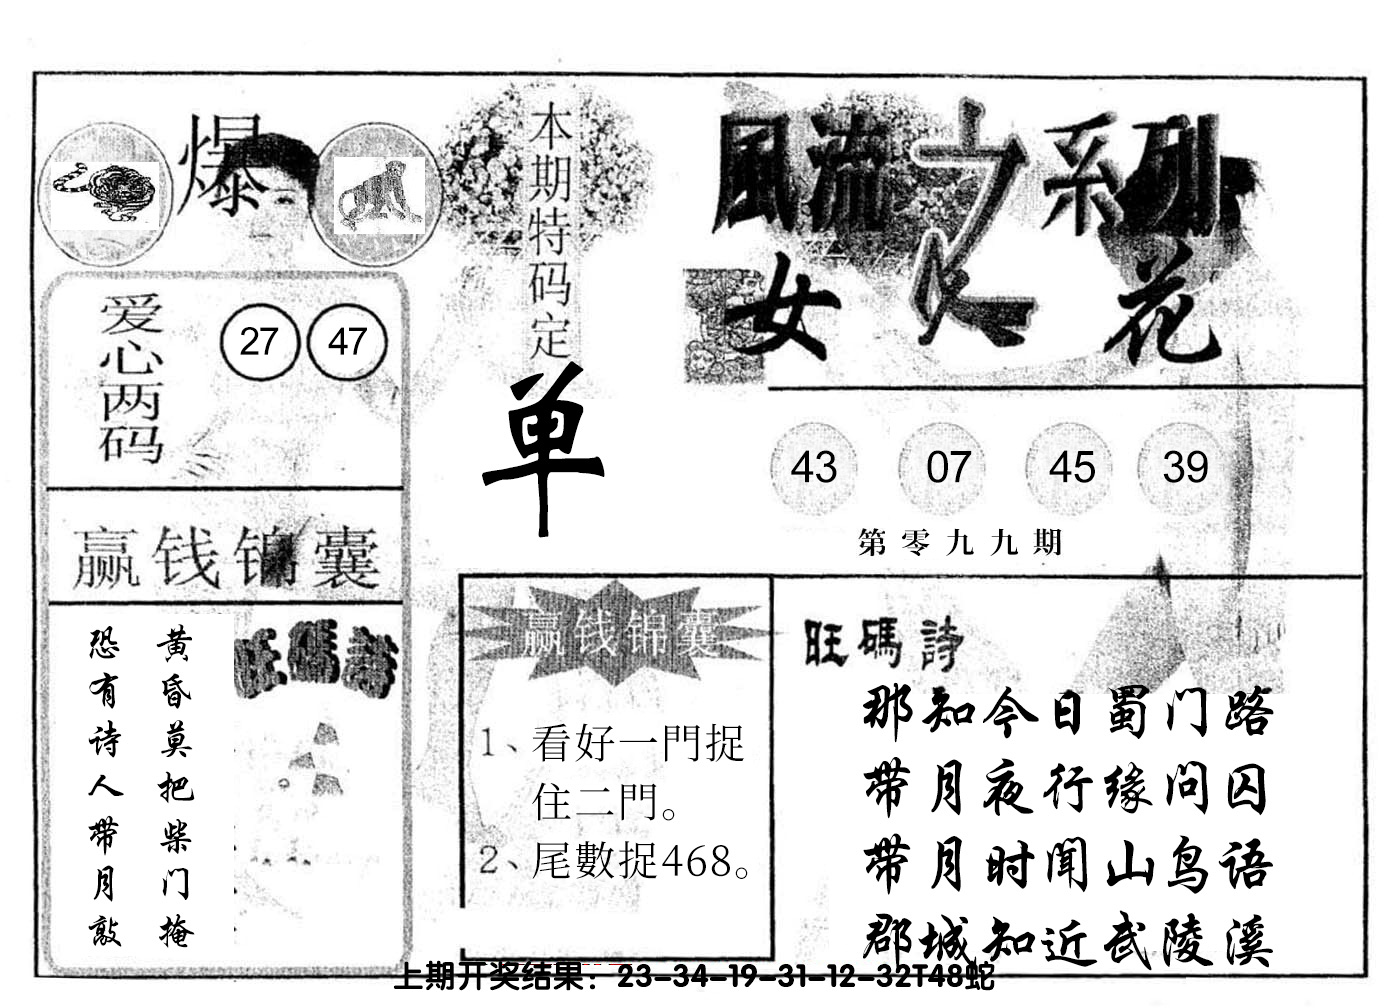 爆
爱心两码
27 47
赢钱锦囊
黄昏莫把柴门掩
恐有诗人带月敲
旺碼詩
本期特码定
单
風流之系列
女人花
43 07 45 39
第零九九期
赢钱锦囊
1、看好一門捉
住二門。
2、尾數捉468。
旺碼詩
那知今日蜀门路
带月夜行缘问囚
带月时闻山鸟语
郡城知近武陵溪
上期开奖结果：23-34-19-31-12-32T48蛇